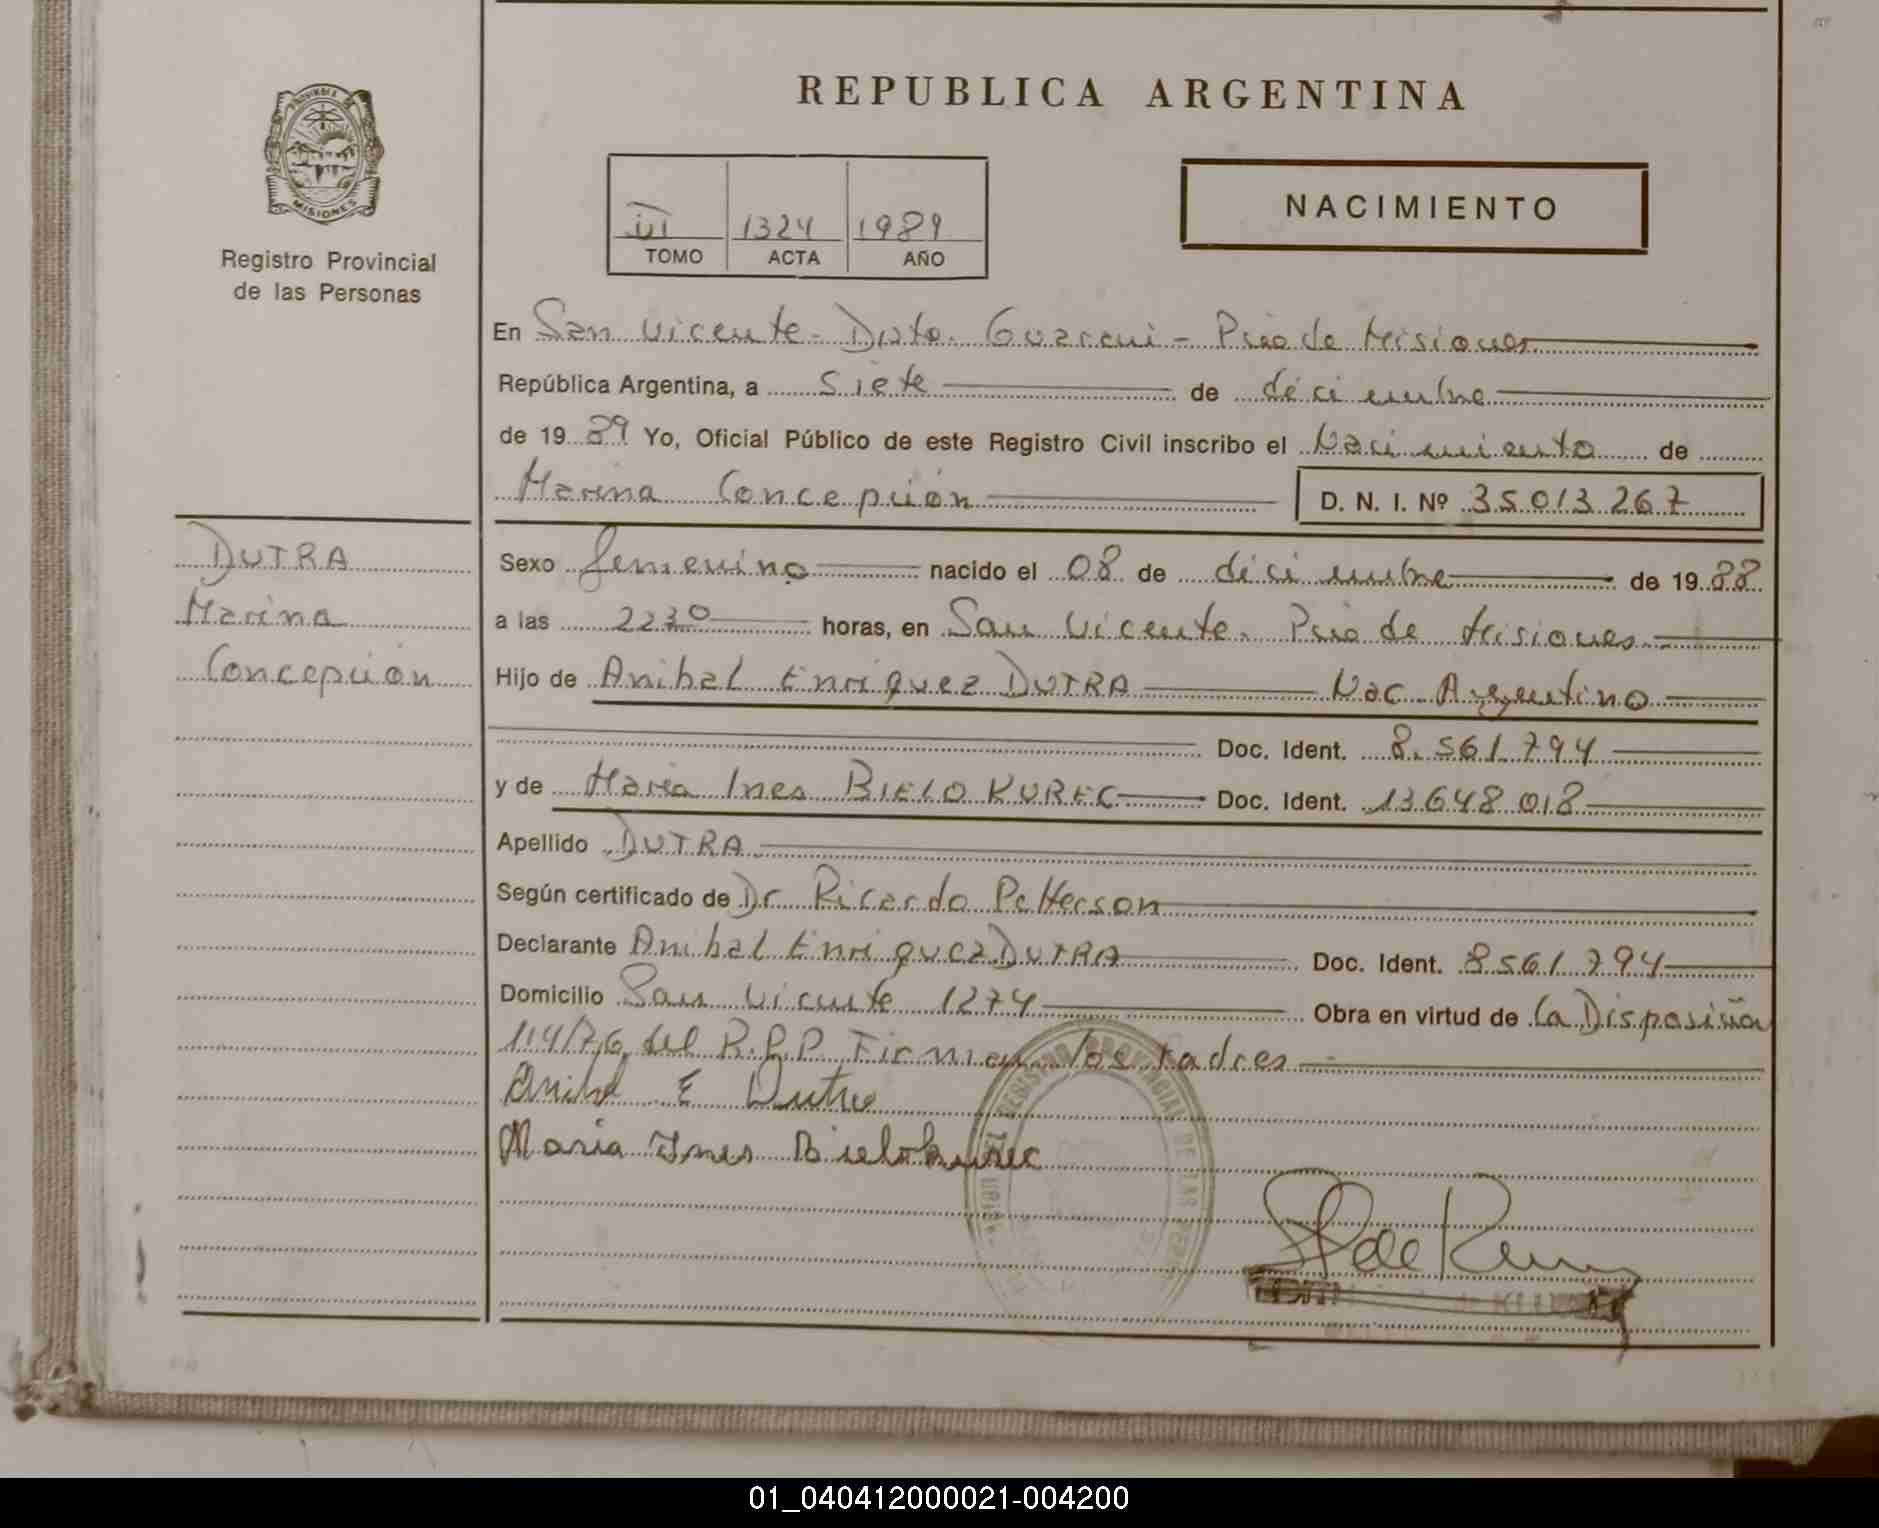 REPUBLICA ARGENTINA
PROVINCIA DE
MISIONES
Registro Provincial
de las Personas
III 1324 1989
TOMO ACTA AÑO
NACIMIENTO
En San Vicente - Dpto. Guarani - Pcia de Misiones
República Argentina, a siete de diciembre
de 1989 Yo, Oficial Público de este Registro Civil inscribo el Nacimiento de
Marina Concepción D. N. I. Nº 35013267
DUTRA
Marina
Concepción
Sexo femenino nacido el 08 de diciembre de 1988
a las 2230 horas, en San Vicente. Pcia de Misiones
Hijo de Anibal Enriquez DUTRA Nac Argentino
Doc. Ident. 8.561.794
y de Maria Ines BIELOKUREC Doc. Ident. 13648018
Apellido DUTRA
Según certificado de Dr Ricardo Patterson
Declarante Anibal Enriquez DUTRA Doc. Ident. 8561794
Domicilio San Vicente 1274 Obra en virtud de la Disposición
114/76 del R.P.P. Firman los Padres
Anibal E Dutra
Maria Ines Bielokurec
REGISTRO PROVINCIAL DE LAS
01_040412000021-004200